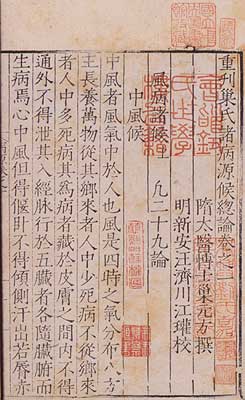 重刊巢氏諸病源候總論卷之一
隋太醫博士巢元方撰
明新安汪濟川江瓘校
風病諸候上 凡二十九論
中風候
中風者風氣中於人也風是四時之氣分布八方
主長養萬物從其鄉來者人中少死病不從鄉來
者人中多死病其為病者藏於皮膚之間內不得
通外不得泄其入經脉行於五臟者各隨臟腑而
生病焉心中風但得偃臥不得傾側汗出若唇赤